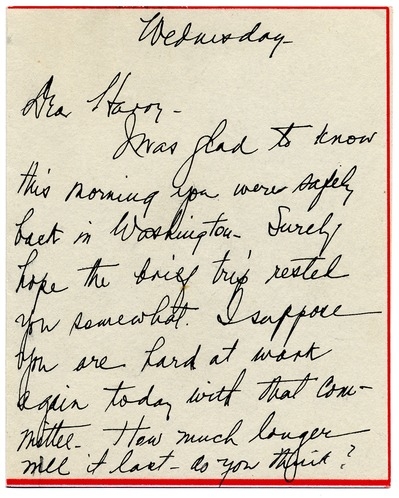 Wednesday-
Dear Harry-
I was glad to know
this morning you were safely
back in Washington- Surely
hope the brief trip rested
you somewhat. I suppose
you are hard at work
again today with that com-
mittee- How much longer
will it last- do you think?